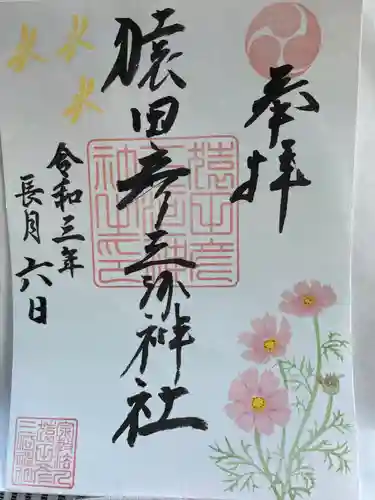 奉拝
猿田彦三河神社
令和三年
長月六日